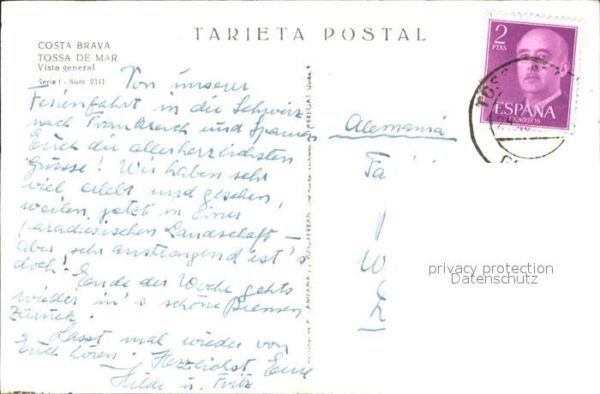 TARJETA POSTAL
COSTA BRAVA
TOSSA DE MAR
Vista general
Serie I - Núm. 2361
Von unserer
Ferienfahrt in die Schweiz
nach Frankreich und Spanien
Euch die allerherzlichsten
Grüsse! Wir haben sehr
viel erlebt und gesehen,
weilen jetzt in einer
paradiesischen Landschaft –
aber sehr anstrengend ist's
doch!
Ende der Woche gehts
wieder in's schöne Bremen
zurück.
Lasst mal wieder von
Euch hören. Herzlichst Eure
Hilde u. Fritz
Alemania
Fa
W
2
PTAS
ESPAÑA
CORREOS
privacy protection
Datenschutz